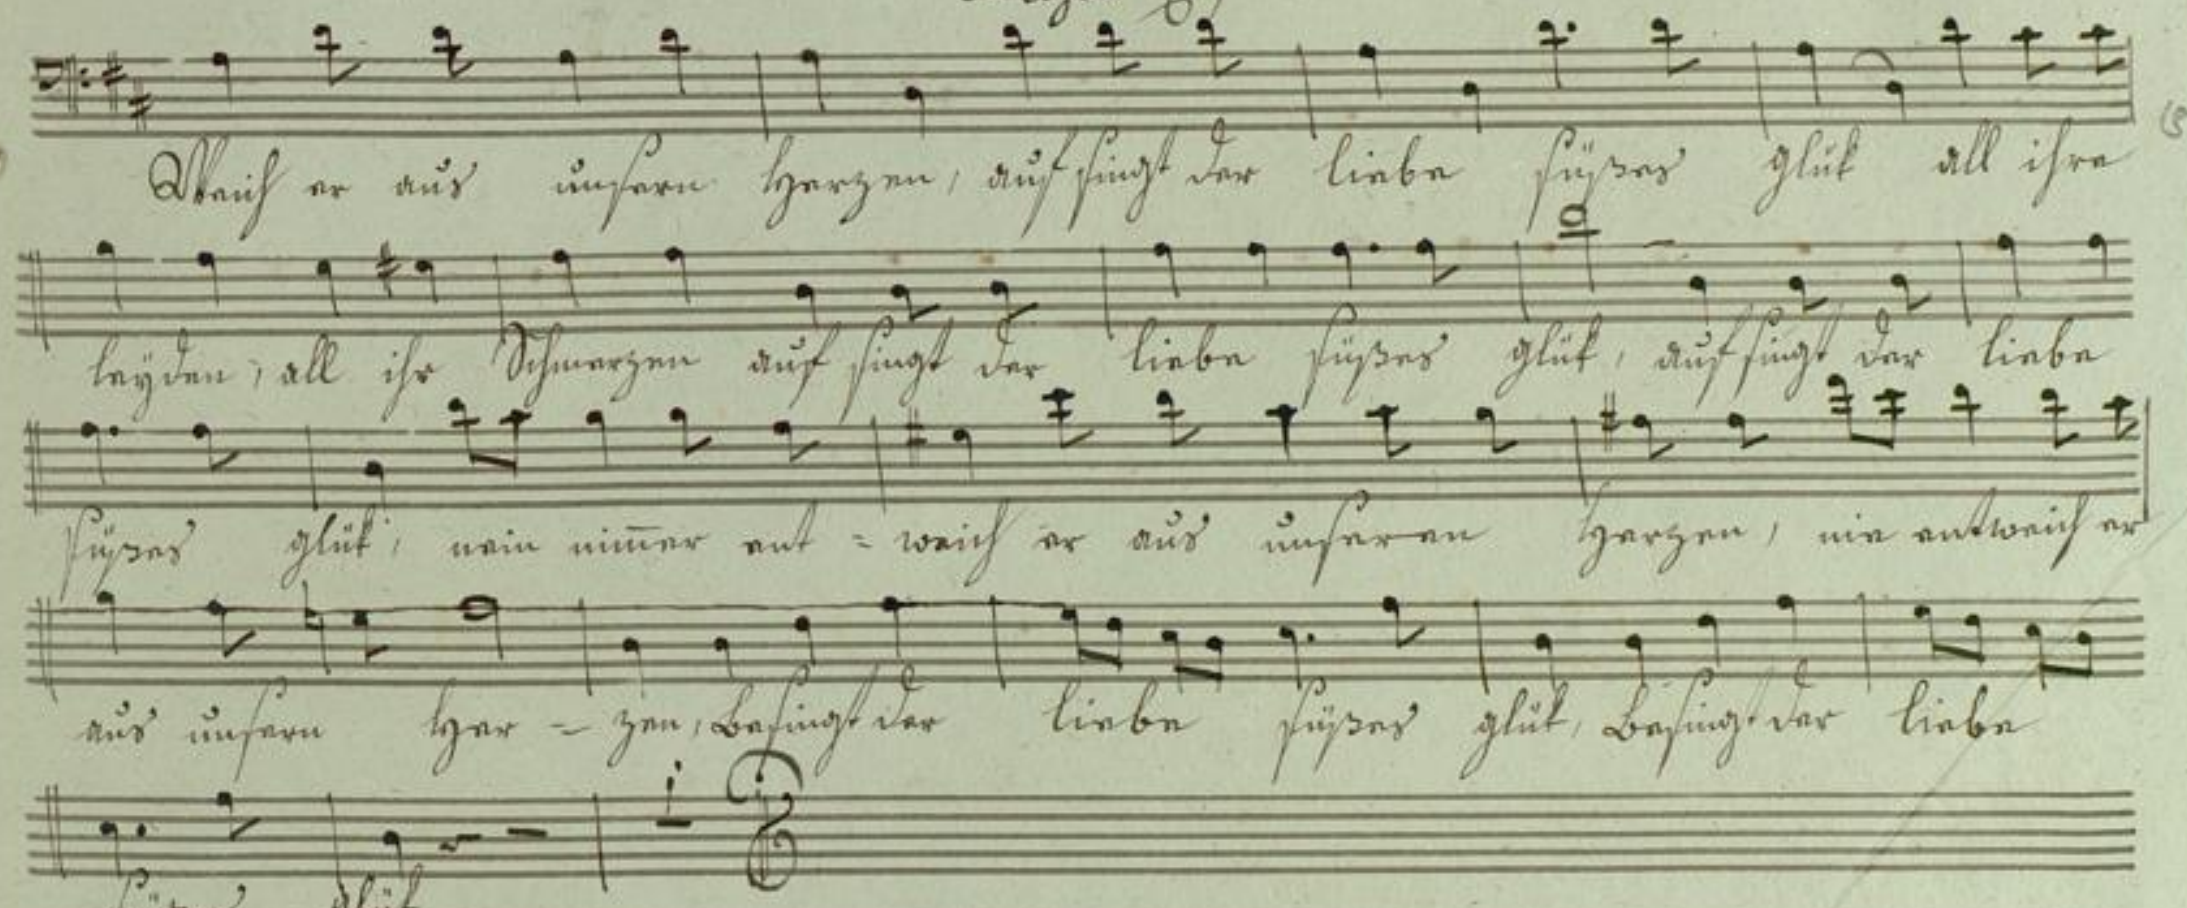 Weich er aus unsern Herzen, auf singt der liebe süßes glük all ihre
leyden, all ihr Schmerzen auf singt der liebe süßes glük, auf singt der liebe
süßes glük, nein nim̄er ent = weich er aus unseren Herzen, nie entweich er
aus unsern Her = zen, Besingt der liebe süßes glük, Besingt der liebe
süßes glük